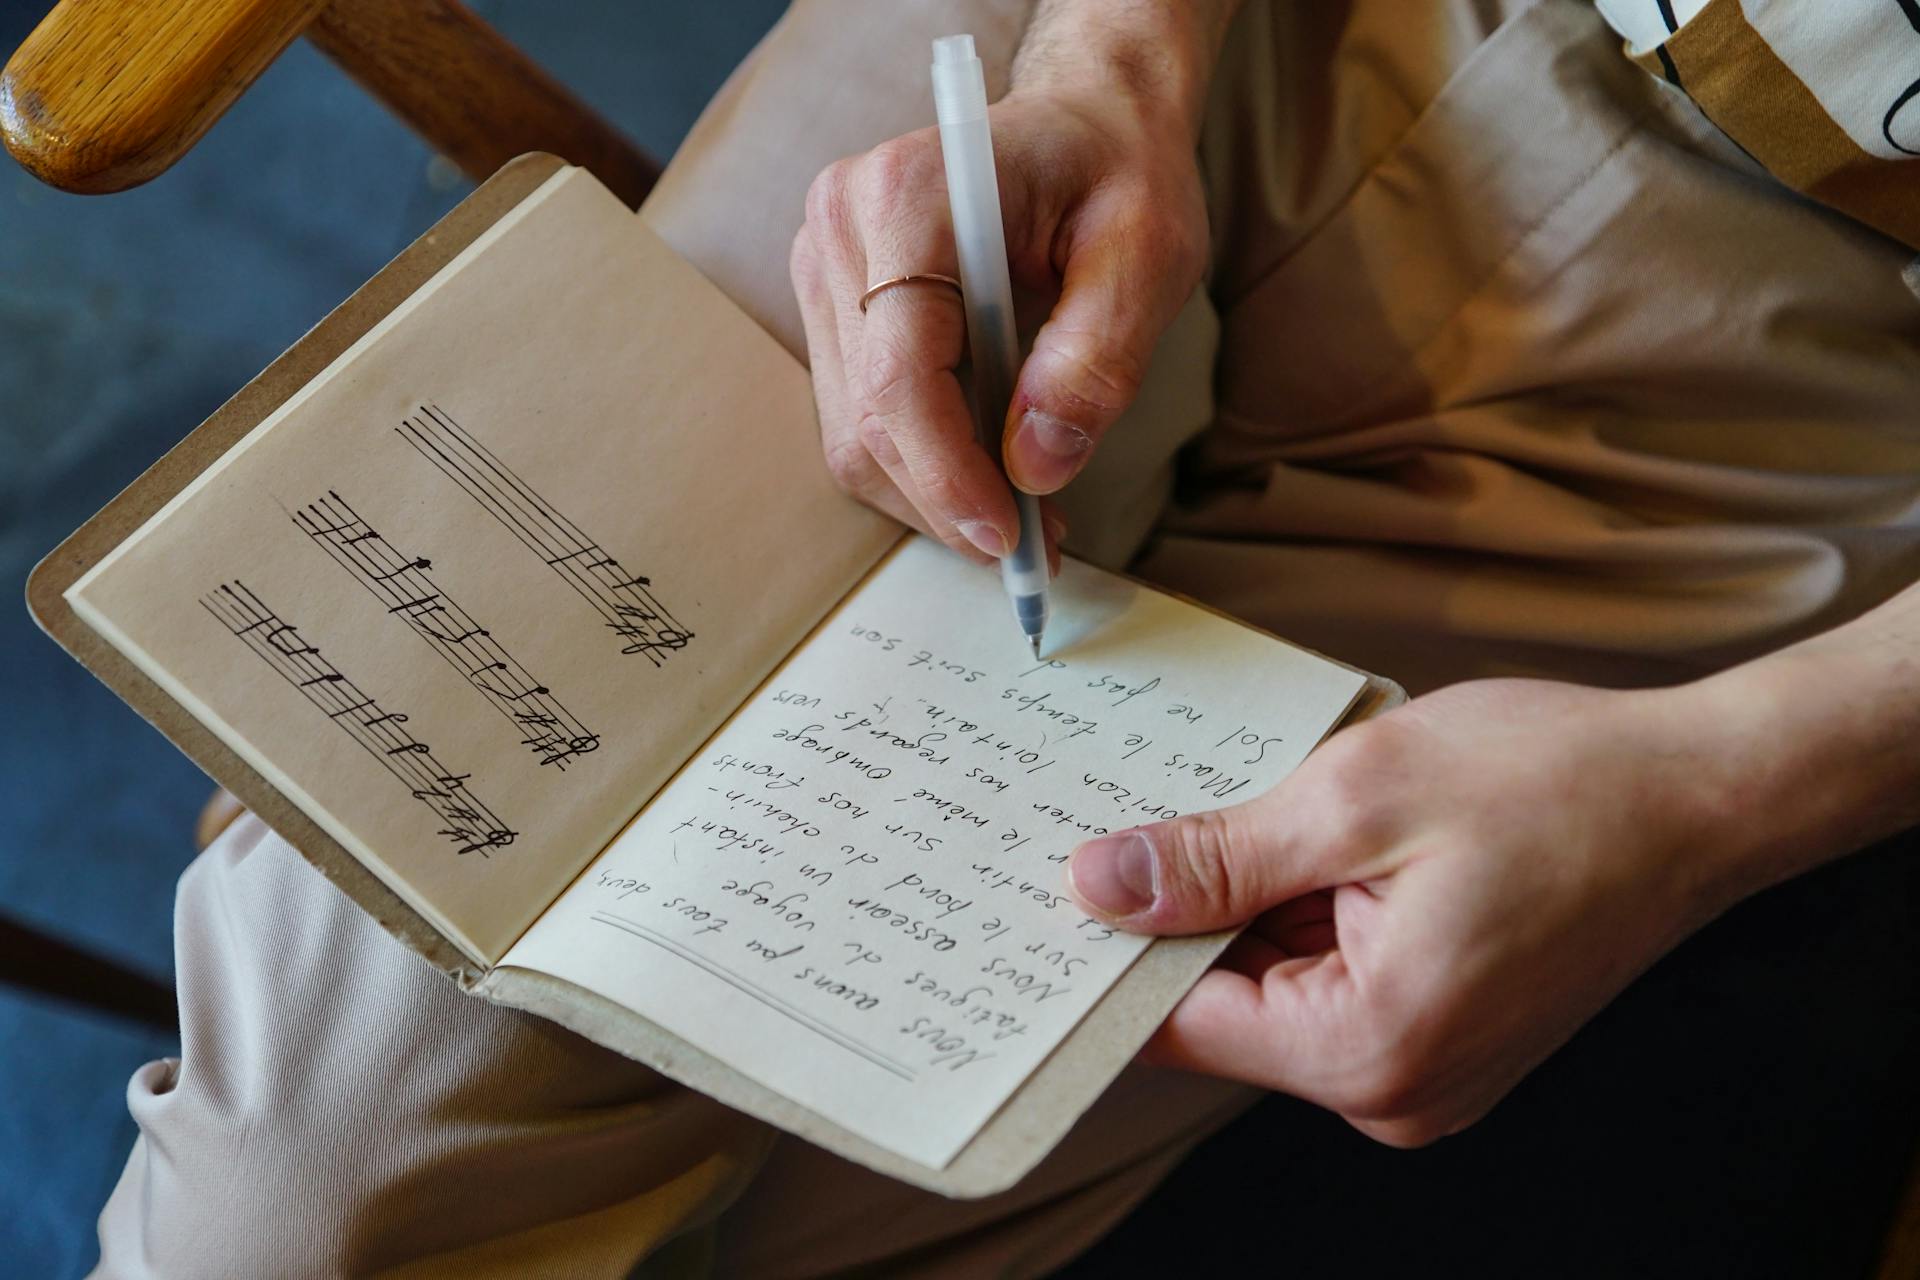 Nous avons pu tous deux,
fatigues du voyage
Nous asseoir un instant
sur le bord du chemin-
Et sentir sur nos fronts
le même ombrage
nos regards vers
orizon lointain.
Mais le temps suit son
Sol ne pas d